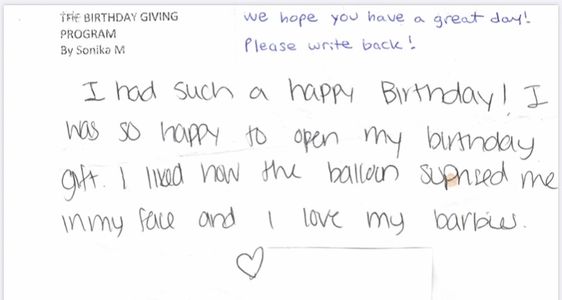 THE BIRTHDAY GIVING
PROGRAM
By Sonika M
we hope you have a great day!
Please write back!
I had such a happy Birthday! I
was so happy to open my birthday
gift. I liked how the balloon suprised me
in my face and I love my barbies.